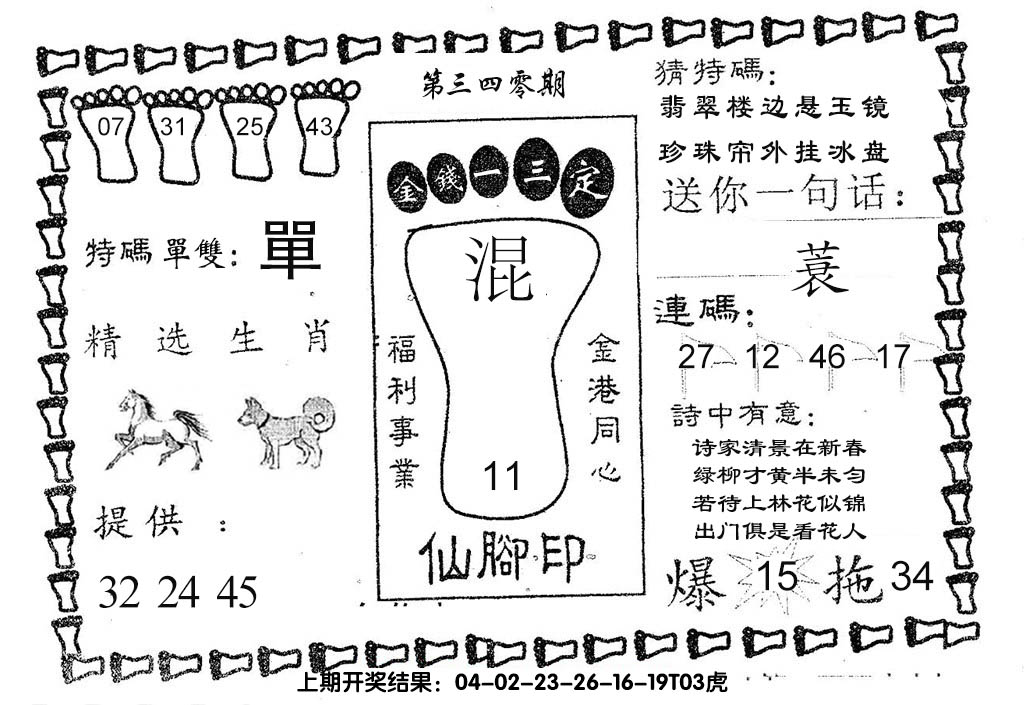 第三四零期
07 31 25 43
特碼單雙：單
精选生肖
提供：
32 24 45
金錢一三定
混
福利事業
金港同心
11
仙腳印
猜特碼：
翡翠楼边悬玉镜
珍珠帘外挂冰盘
送你一句话：
蓑
連碼：
27 12 46 17
詩中有意：
诗家清景在新春
绿柳才黄半未匀
若待上林花似锦
出门俱是看花人
爆 15 拖 34
上期开奖结果：04-02-23-26-16-19T03虎